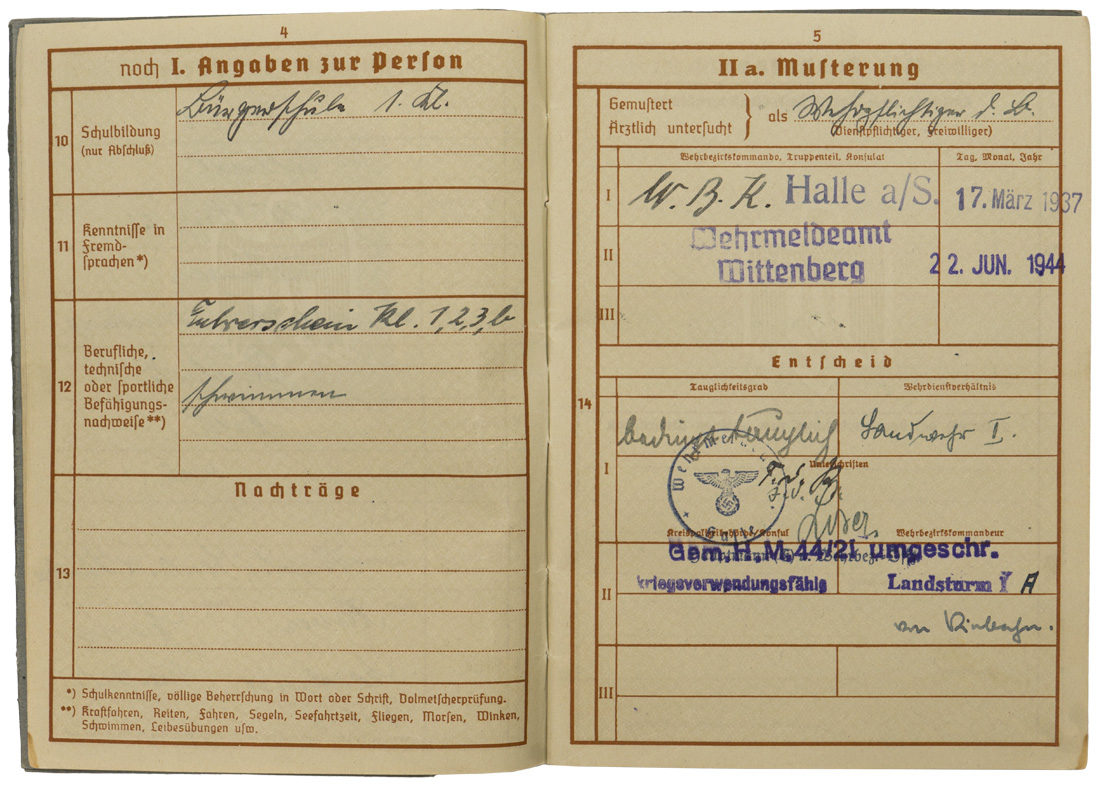 4
noch I. Angaben zur Person
10
Schulbildung
(nur Abschluß)
Bürgerschule 1. Kl.
11
Kenntnisse in
Fremd-
sprachen*)
12
Berufliche,
technische
oder sportliche
Befähigungs-
nachweise**)
Führerschein Kl. 1,2,3,b
schwimmen
Nachträge
13
*) Schulkenntnisse, völlige Beherrschung in Wort oder Schrift, Dolmetscherprüfung.
**) Kraftfahren, Reiten, Fahren, Segeln, Seefahrtzeit, Fliegen, Morsen, Winken,
Schwimmen, Leibesübungen usw.
5
II a. Musterung
Gemustert
Ärztlich untersucht } als Wehrpflichtiger d. B.
(Dienstpflichtiger, Freiwilliger)
Wehrbezirkskommando, Truppenteil, Konsulat
Tag, Monat, Jahr
I
W. B. K. Halle a/S.
17. März 1937
II
Wehrmeldeamt
Wittenberg
22. JUN. 1944
III
Entscheid
14
Tauglichkeitsgrad
Wehrdienstverhältnis
I
bedingt tauglich
Landwehr I.
Unterschriften
Kreispolizeibehörde/Konsul
Wehrbezirkskommandeur
Gem. H. M. 44/21 umgeschr.
II
kriegsverwendungsfähig
Landsturm I A
III